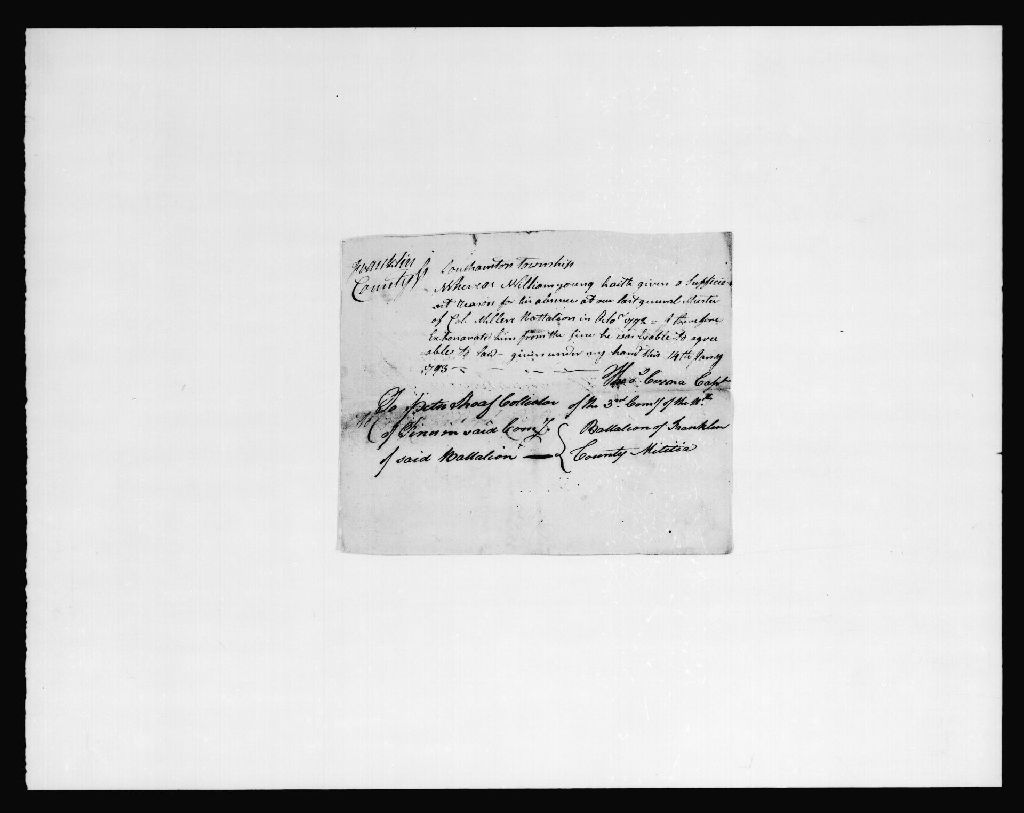 Franklin
County Ss Southamton township
Whereas William young haith given a Suffice
ent reason for his absence at our last general Muster
of Col. Millers Battalion in Octor 1792 = I therefore
Exhonarate him from the fine he was liable to agree
ables to law - given under my hand this 14th Janry
1793
Thos. Capt
To peter Shoaf Collector of the 3rd Comy of the
of Fines in said Comy Battalion of Franklin
of said Battalion County Militia